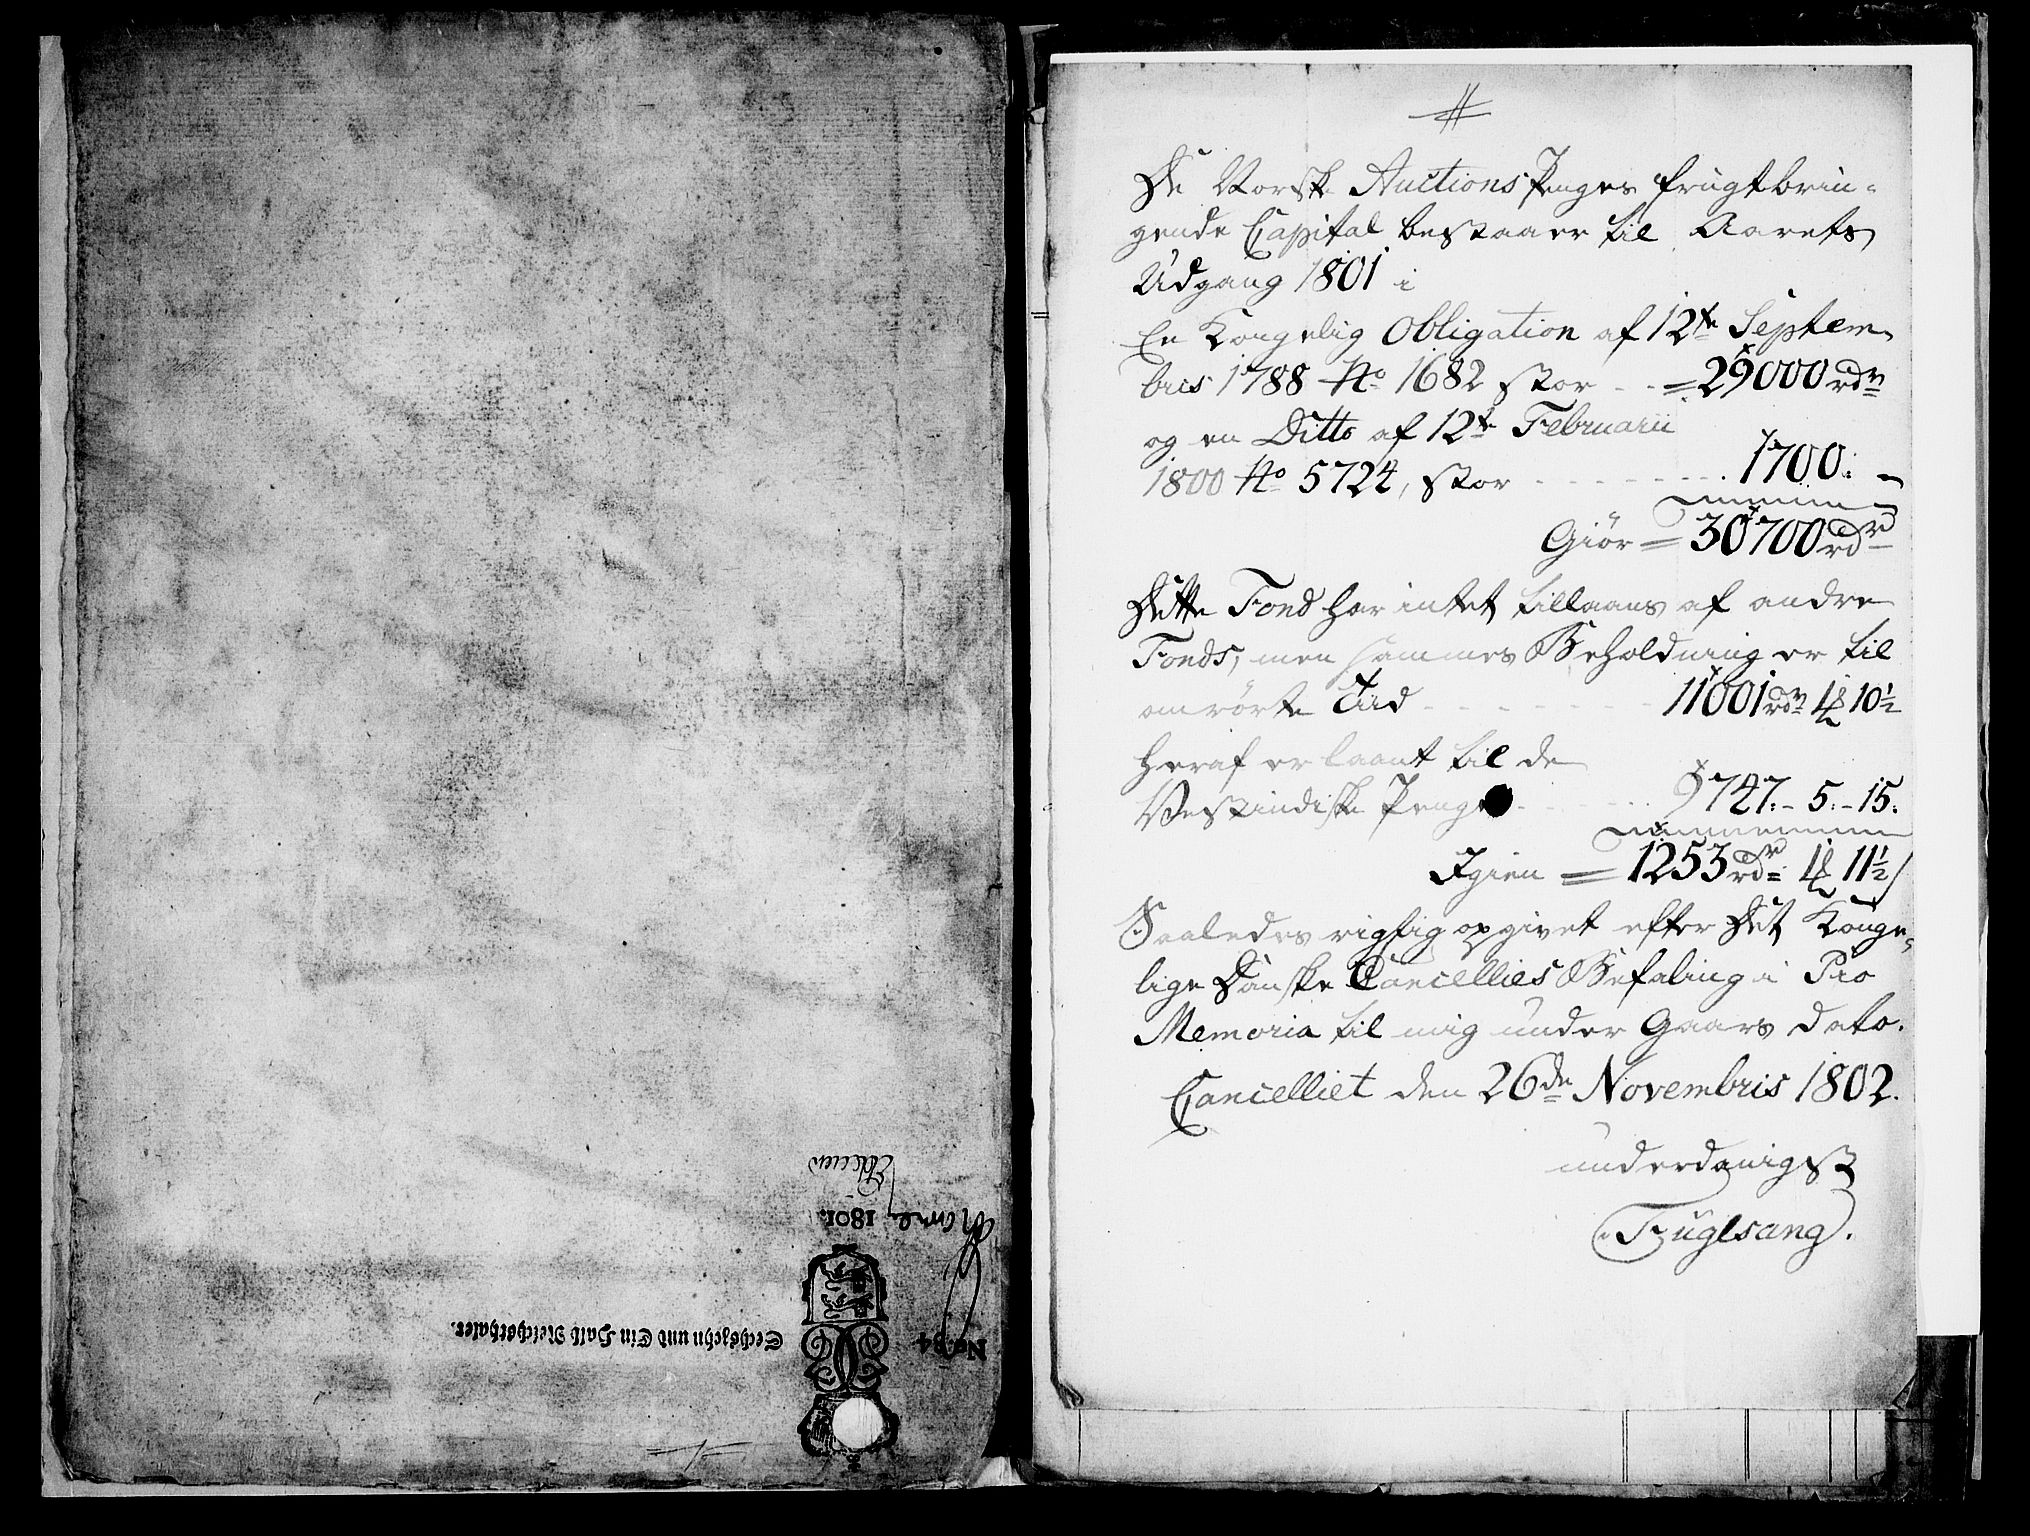 De Norske Auctions Penges frugtbrin-
gende Capital bestaaer til Aarets
Udgang 1801 i
En Kongelig Obligation af 12te Septem-
bris 1788 No 1682 stor - - = 29000 rdr
og en Ditto af 12te Februarii
1800 No 5724, stor - - - - - - - 1700: -
Giör = 30700 rdr
Dette Fond har intet tillaans af andre
Fonds, men sammes Beholdning er til
omrörte Tiid - - - - - - - 11001 rdr 4 ß 10½
heraf er laant til de
Vestindiske Penge - - - - - 9747: - 5: - 15:
Igien = 1253 rdr 4 ß 11½
Saaledes rigtig opgivet efter Det Konge-
lige Danske Cancellies Befaling i Pro
Memoria til mig under Gaars Dato.
Cancelliet den 26de Novembris 1802.
underdanigst
Fuglsang.
No. 34
Sechszehn und Ein Halb Reichsthaler.
1801.